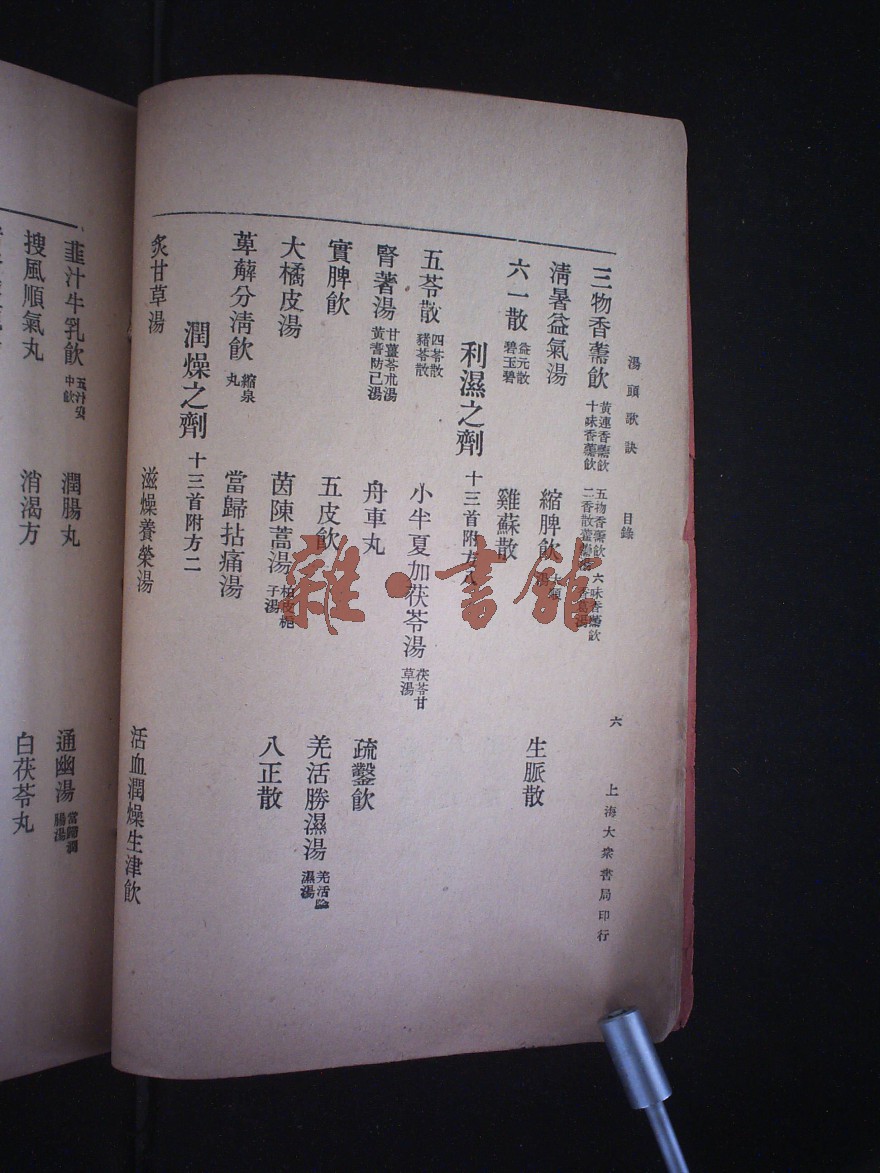 湯頭歌訣 目錄 六 上海大衆書局印行
三物香薷飲 黃連香薷飲 十味香薷飲 五物香薷飲 六味香薷飲 二香散
清暑益氣湯 縮脾飲
六一散 益元散 碧玉 雞蘇散 生脈散
利濕之劑 十三首附方八
五苓散 四苓散 豬苓散 小半夏加茯苓湯 茯苓甘草湯
腎著湯 甘薑苓朮湯 黃耆防己湯 舟車丸 疏鑿飲
實脾飲 五皮飲 羌活勝濕湯 羌活 濕湯
大橘皮湯 茵陳蒿湯 柏皮梔子湯 八正散
萆薢分清飲 縮泉丸 當歸拈痛湯
潤燥之劑 十三首附方二
炙甘草湯 滋燥養榮湯 活血潤燥生津飲
韭汁牛乳飲 五汁安中飲 潤腸丸 通幽湯 當歸潤腸湯
搜風順氣丸 消渴方 白茯苓丸
雜·書館